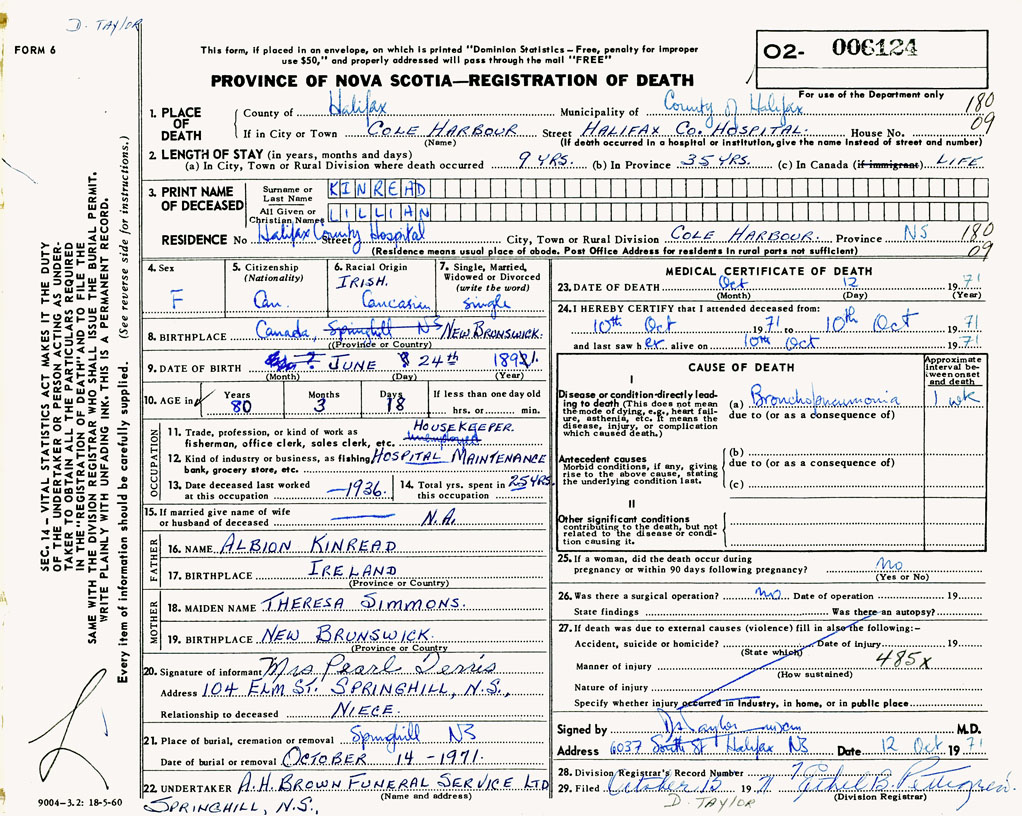 D. TAYLOR
FORM 6
This form, if placed in an envelope, on which is printed "Dominion Statistics – Free, penalty for improper
use $50," and properly addressed will pass through the mail "FREE"
PROVINCE OF NOVA SCOTIA—REGISTRATION OF DEATH
O2- 006124
For use of the Department only
180
09
1. PLACE OF DEATH
County of Halifax Municipality of County of Halifax
If in City or Town COLE HARBOUR Street HALIFAX CO. HOSPITAL. House No.
(Name) (If death occurred in a hospital or institution, give the name instead of street and number)
2. LENGTH OF STAY (in years, months and days)
(a) In City, Town or Rural Division where death occurred 9 YRS. (b) In Province 35 YRS. (c) In Canada (if immigrant) LIFE
3. PRINT NAME OF DECEASED
Surname or Last Name KINREAD
All Given or Christian Names LILLIAN
RESIDENCE No Halifax County Hospital Street City, Town or Rural Division COLE HARBOUR. Province NS 180
(Residence means usual place of abode. Post Office Address for residents in rural parts not sufficient) 09
4. Sex F
5. Citizenship (Nationality) Can.
6. Racial Origin IRISH. Caucasian
7. Single, Married, Widowed or Divorced (write the word) Single
8. BIRTHPLACE Canada, Springhill NS NEW BRUNSWICK.
(Province or Country)
9. DATE OF BIRTH JUNE 24th 1891.
(Month) (Day) (Year)
10. AGE in Years 80 Months 3 Days 18 If less than one day old hrs. or min.
OCCUPATION
11. Trade, profession, or kind of work as HOUSEKEEPER.
fisherman, office clerk, sales clerk, etc. Unemployed
12. Kind of industry or business, as fishing, HOSPITAL MAINTENANCE
bank, grocery store, etc.
13. Date deceased last worked at this occupation –1936.
14. Total yrs. spent in this occupation 25 YRS.
15. If married give name of wife or husband of deceased N.A.
FATHER
16. NAME ALBION KINREAD
17. BIRTHPLACE IRELAND
(Province or Country)
MOTHER
18. MAIDEN NAME THERESA SIMMONS.
19. BIRTHPLACE NEW BRUNSWICK.
(Province or Country)
20. Signature of informant Mrs Pearl
Address 104 ELM ST. SPRINGHILL, N.S.,
Relationship to deceased NIECE.
21. Place of burial, cremation or removal Springhill NS
Date of burial or removal OCTOBER 14 -1971.
22. UNDERTAKER A.H. BROWN FUNERAL SERVICE LTD
(Name and address)
SPRINGHILL, N.S.,
MEDICAL CERTIFICATE OF DEATH
23. DATE OF DEATH Oct 12 1971
(Month) (Day) (Year)
24. I HEREBY CERTIFY that I attended deceased from:
10th Oct 1971 to 10th Oct 1971
and last saw her alive on 10th Oct 1971
CAUSE OF DEATH
Approximate interval between onset and death
I
Disease or condition directly leading to death (This does not mean the mode of dying, e.g., heart failure, asthenia, etc. It means the disease, injury, or complication which caused death.)
(a) Bronchopneumonia 1 wk
due to (or as a consequence of)
Antecedent causes
Morbid conditions, if any, giving rise to the above cause, stating the underlying condition last.
(b)
due to (or as a consequence of)
(c)
II
Other significant conditions
contributing to the death, but not related to the disease or condition causing it.
25. If a woman, did the death occur during
pregnancy or within 90 days following pregnancy? no
(Yes or No)
26. Was there a surgical operation? no Date of operation 19
State findings Was there an autopsy?
27. If death was due to external causes (violence) fill in also the following:–
Accident, suicide or homicide? Date of injury 19
(State which)
Manner of injury 485X
(How sustained)
Nature of injury
Specify whether injury occurred in industry, in home, or in public place
Signed by M.D.
Address 6037 South St Halifax NS Date 12 Oct 1971
28. Division Registrar's Record Number 7
29. Filed October 15 1971 Ethel B.
D. TAYLOR (Division Registrar)
SEC. 14 – VITAL STATISTICS ACT MAKES IT THE DUTY
OF THE UNDERTAKER OR PERSON ACTING AS UNDER-
TAKER TO OBTAIN ALL THE PARTICULARS REQUIRED
IN THE "REGISTRATION OF DEATH" AND TO FILE THE
SAME WITH THE DIVISION REGISTRAR WHO SHALL ISSUE THE BURIAL PERMIT.
WRITE PLAINLY WITH UNFADING INK. THIS IS A PERMANENT RECORD.
Every item of information should be carefully supplied. (See reverse side for instructions.)
9004–3.2: 18-5-60